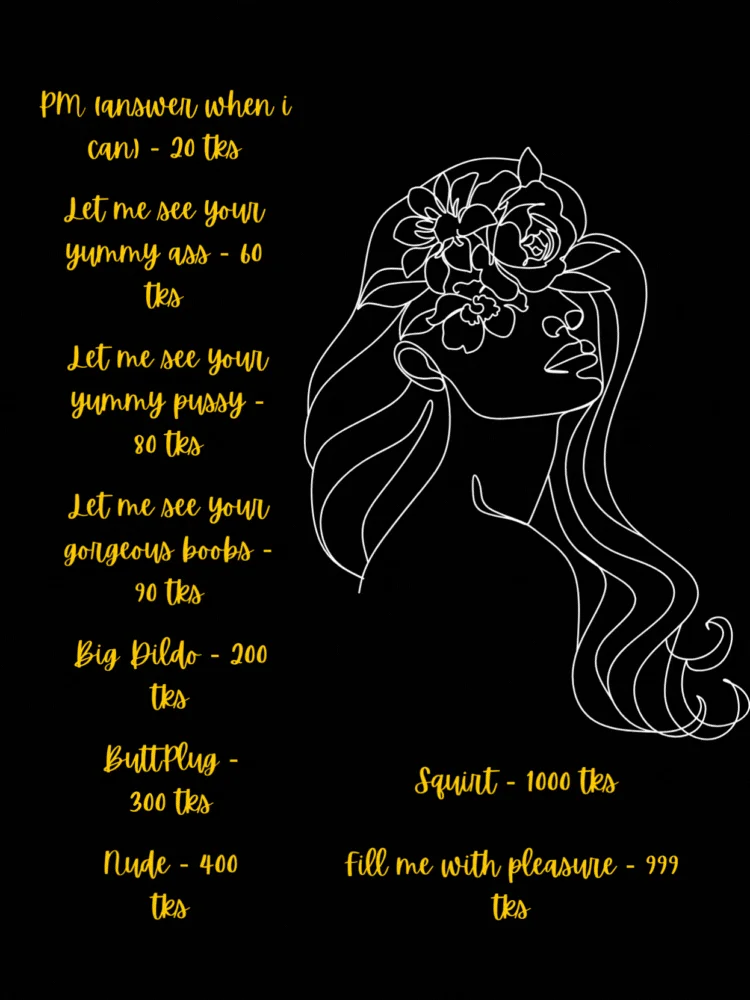 PM (answer when i
can) - 20 tks
Let me see your
yummy ass - 60
tks
Let me see your
yummy pussy -
80 tks
Let me see your
gorgeous boobs -
90 tks
Big Dildo - 200
tks
ButtPlug -
300 tks
Nude - 400
tks
Squirt - 1000 tks
Fill me with pleasure - 999
tks